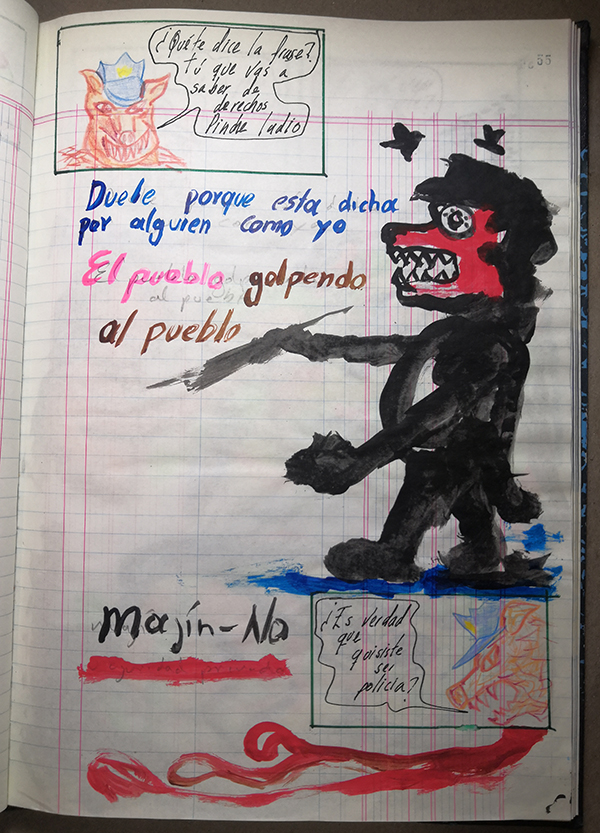 55
¿Quéte dice la frase?
tú que vas a
saber de
derechos
Pinche ladio
Duele porque esta dicha
por alguien como yo
El pueblo golpendo
al pueblo
Majín-No
¿Es verdad
que
quisiste
ser
policía?